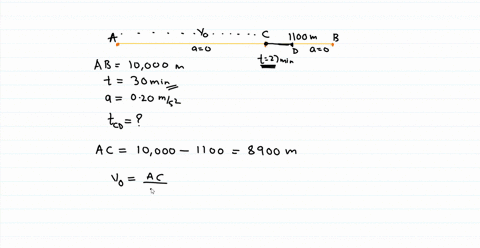 A V₀ C 1100 m B
a=0 D a=0
t=27 min
AB = 10,000 m
t = 30 min
a = 0.20 m/s2
t_CD = ?
AC = 10,000 − 1100 = 8900 m
V₀ = AC